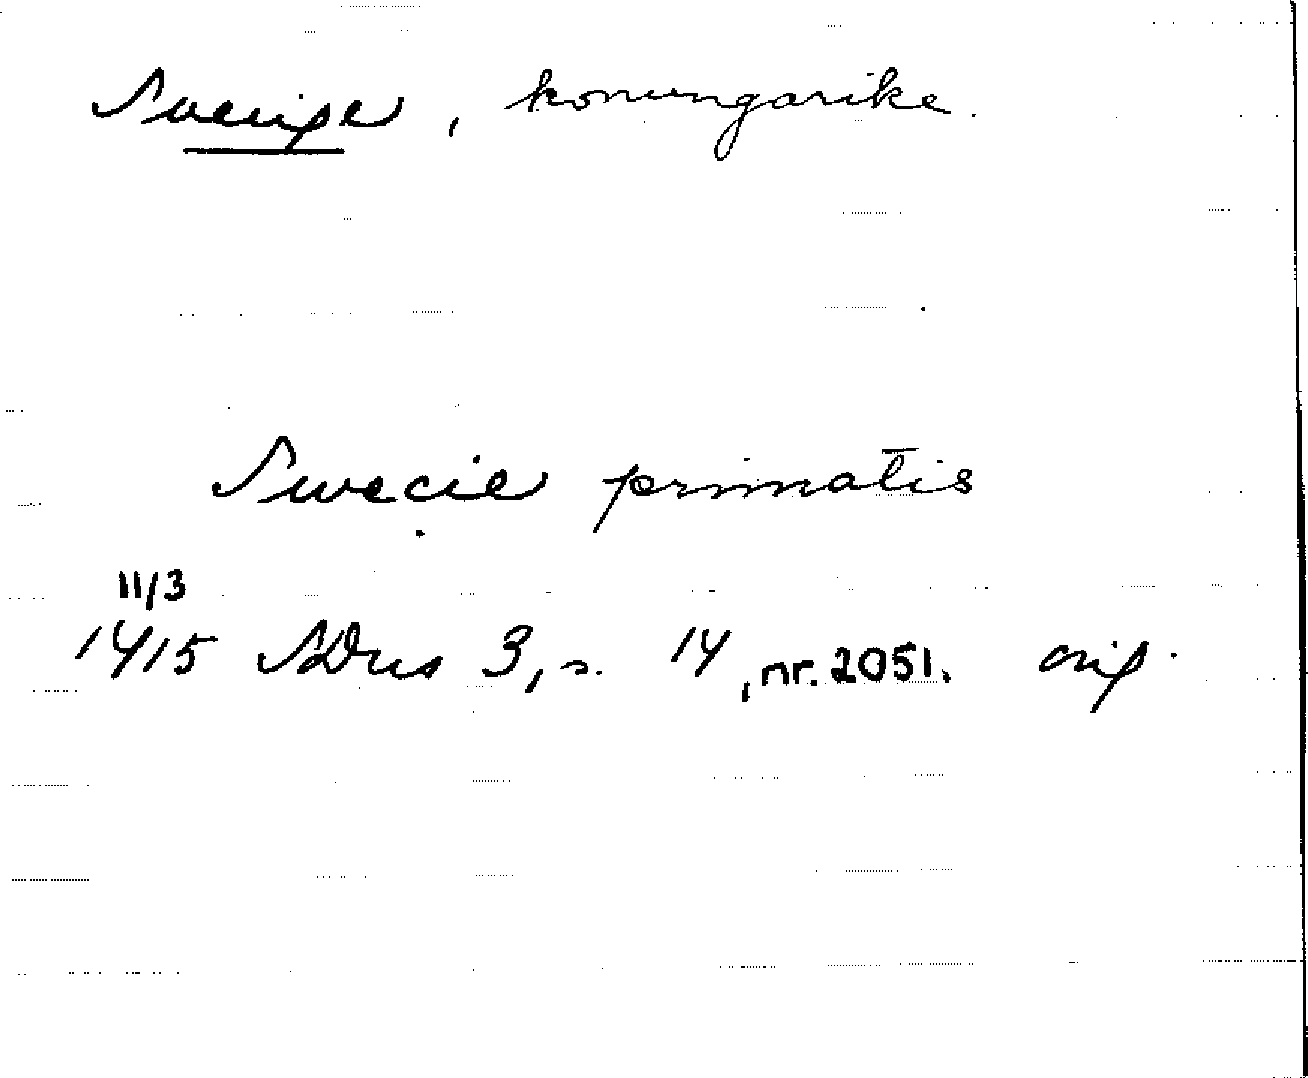 Sverige, konungarike.
Swecie primatis
11/3
1415 SDns 3, s. 14, nr. 2051. orig.